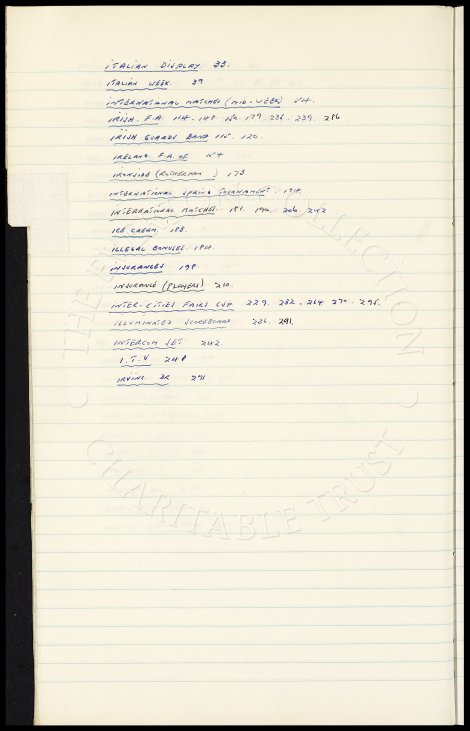 ITALIAN DISPLAY. 33.
ITALIAN WEEK. 39
INTERNATIONAL MATCHES (MID-WEEK) 54.
IRISH. F.A. 114. 148. 150. 179. 236. 239. 286
IRISH GUARDS BAND 115. 120.
IRELAND. F.A. OF 154
IRONSIDE (ROTHERHAM ) 173
INTERNATIONAL SPRING TOURNAMENT. 174.
INTERNATIONAL MATCHES. 181. 190. 206. 242
ICE CREAM. 183.
ILLEGAL BONUSES. 184.
INSURANCES 198.
INSURANCE (PLAYERS) 210.
INTER-CITIES FAIRS CUP 229. 262. 264. 270. 295.
ILLUMINATED SCOREBOARD 286. 291.
INTERCOM SET 242.
I.T.V 248
IRVING. DR 271
THE COLLECTION
CHARITABLE TRUST